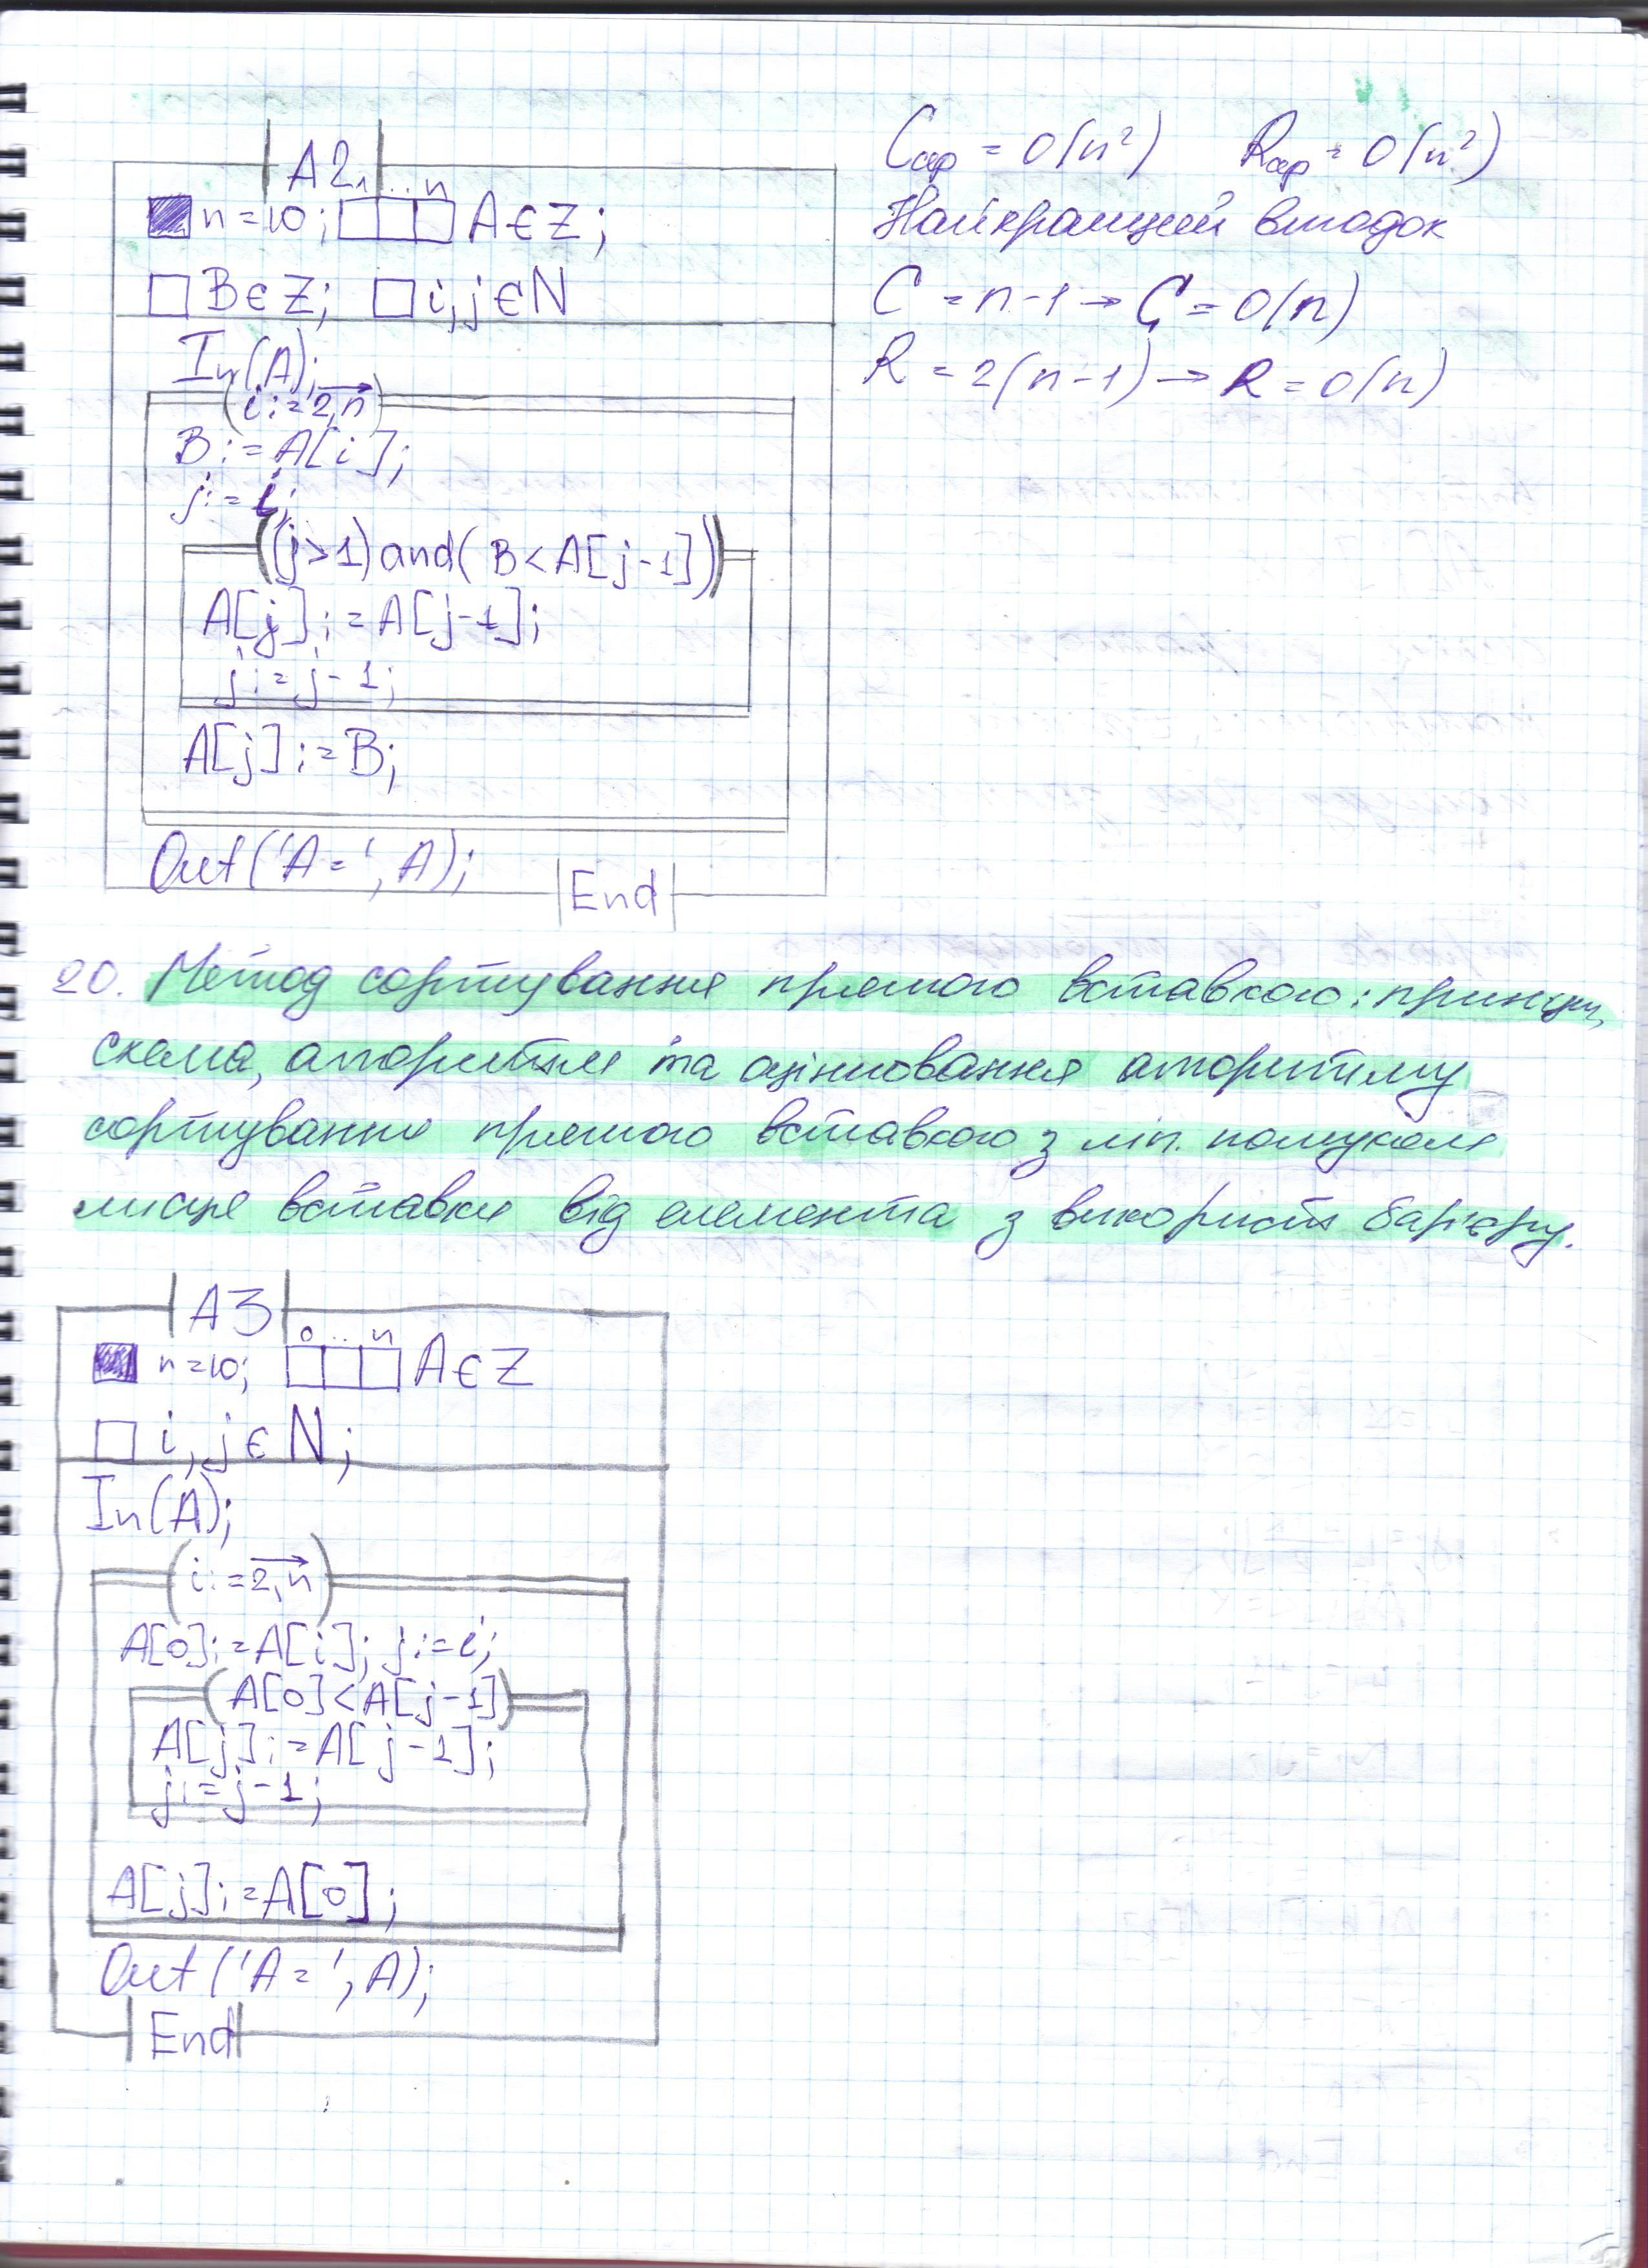 A2
n=10; 1...n A∈Z;
B∈Z; i,j∈N
In(A);
(i:=2,n)
B:=A[i];
j:=i;
((j>1)and(B<A[j-1]))
A[j]:=A[j-1];
j:=j-1;
A[j]:=B;
Out('A=',A);
End
Cср = O(n²) Rср = O(n²)
Найкращий випадок
C = n-1 → C = O(n)
R = 2(n-1) → R = O(n)
20. Метод сортування прямою вставкою: принцип,
схема, алгоритм та оцінювання алгоритму
сортування прямою вставкою з лін. пошуком
місця вставки від елемента з використ бар'єру.
A3
n=10; 0...n A∈Z
i,j∈N;
In(A);
(i:=2,n)
A[0]:=A[i]; j:=i;
(A[0]<A[j-1])
A[j]:=A[j-1];
j:=j-1;
A[j]:=A[0];
Out('A=',A);
End